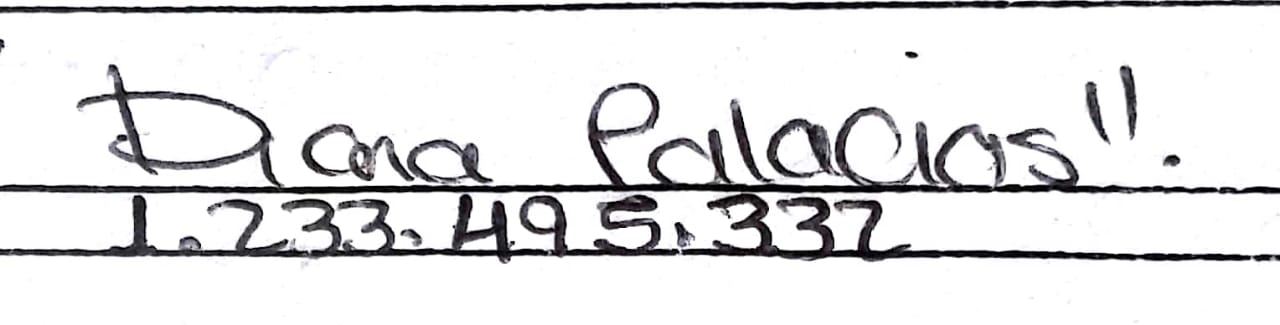 Diana Palacios".
1.233.495.332